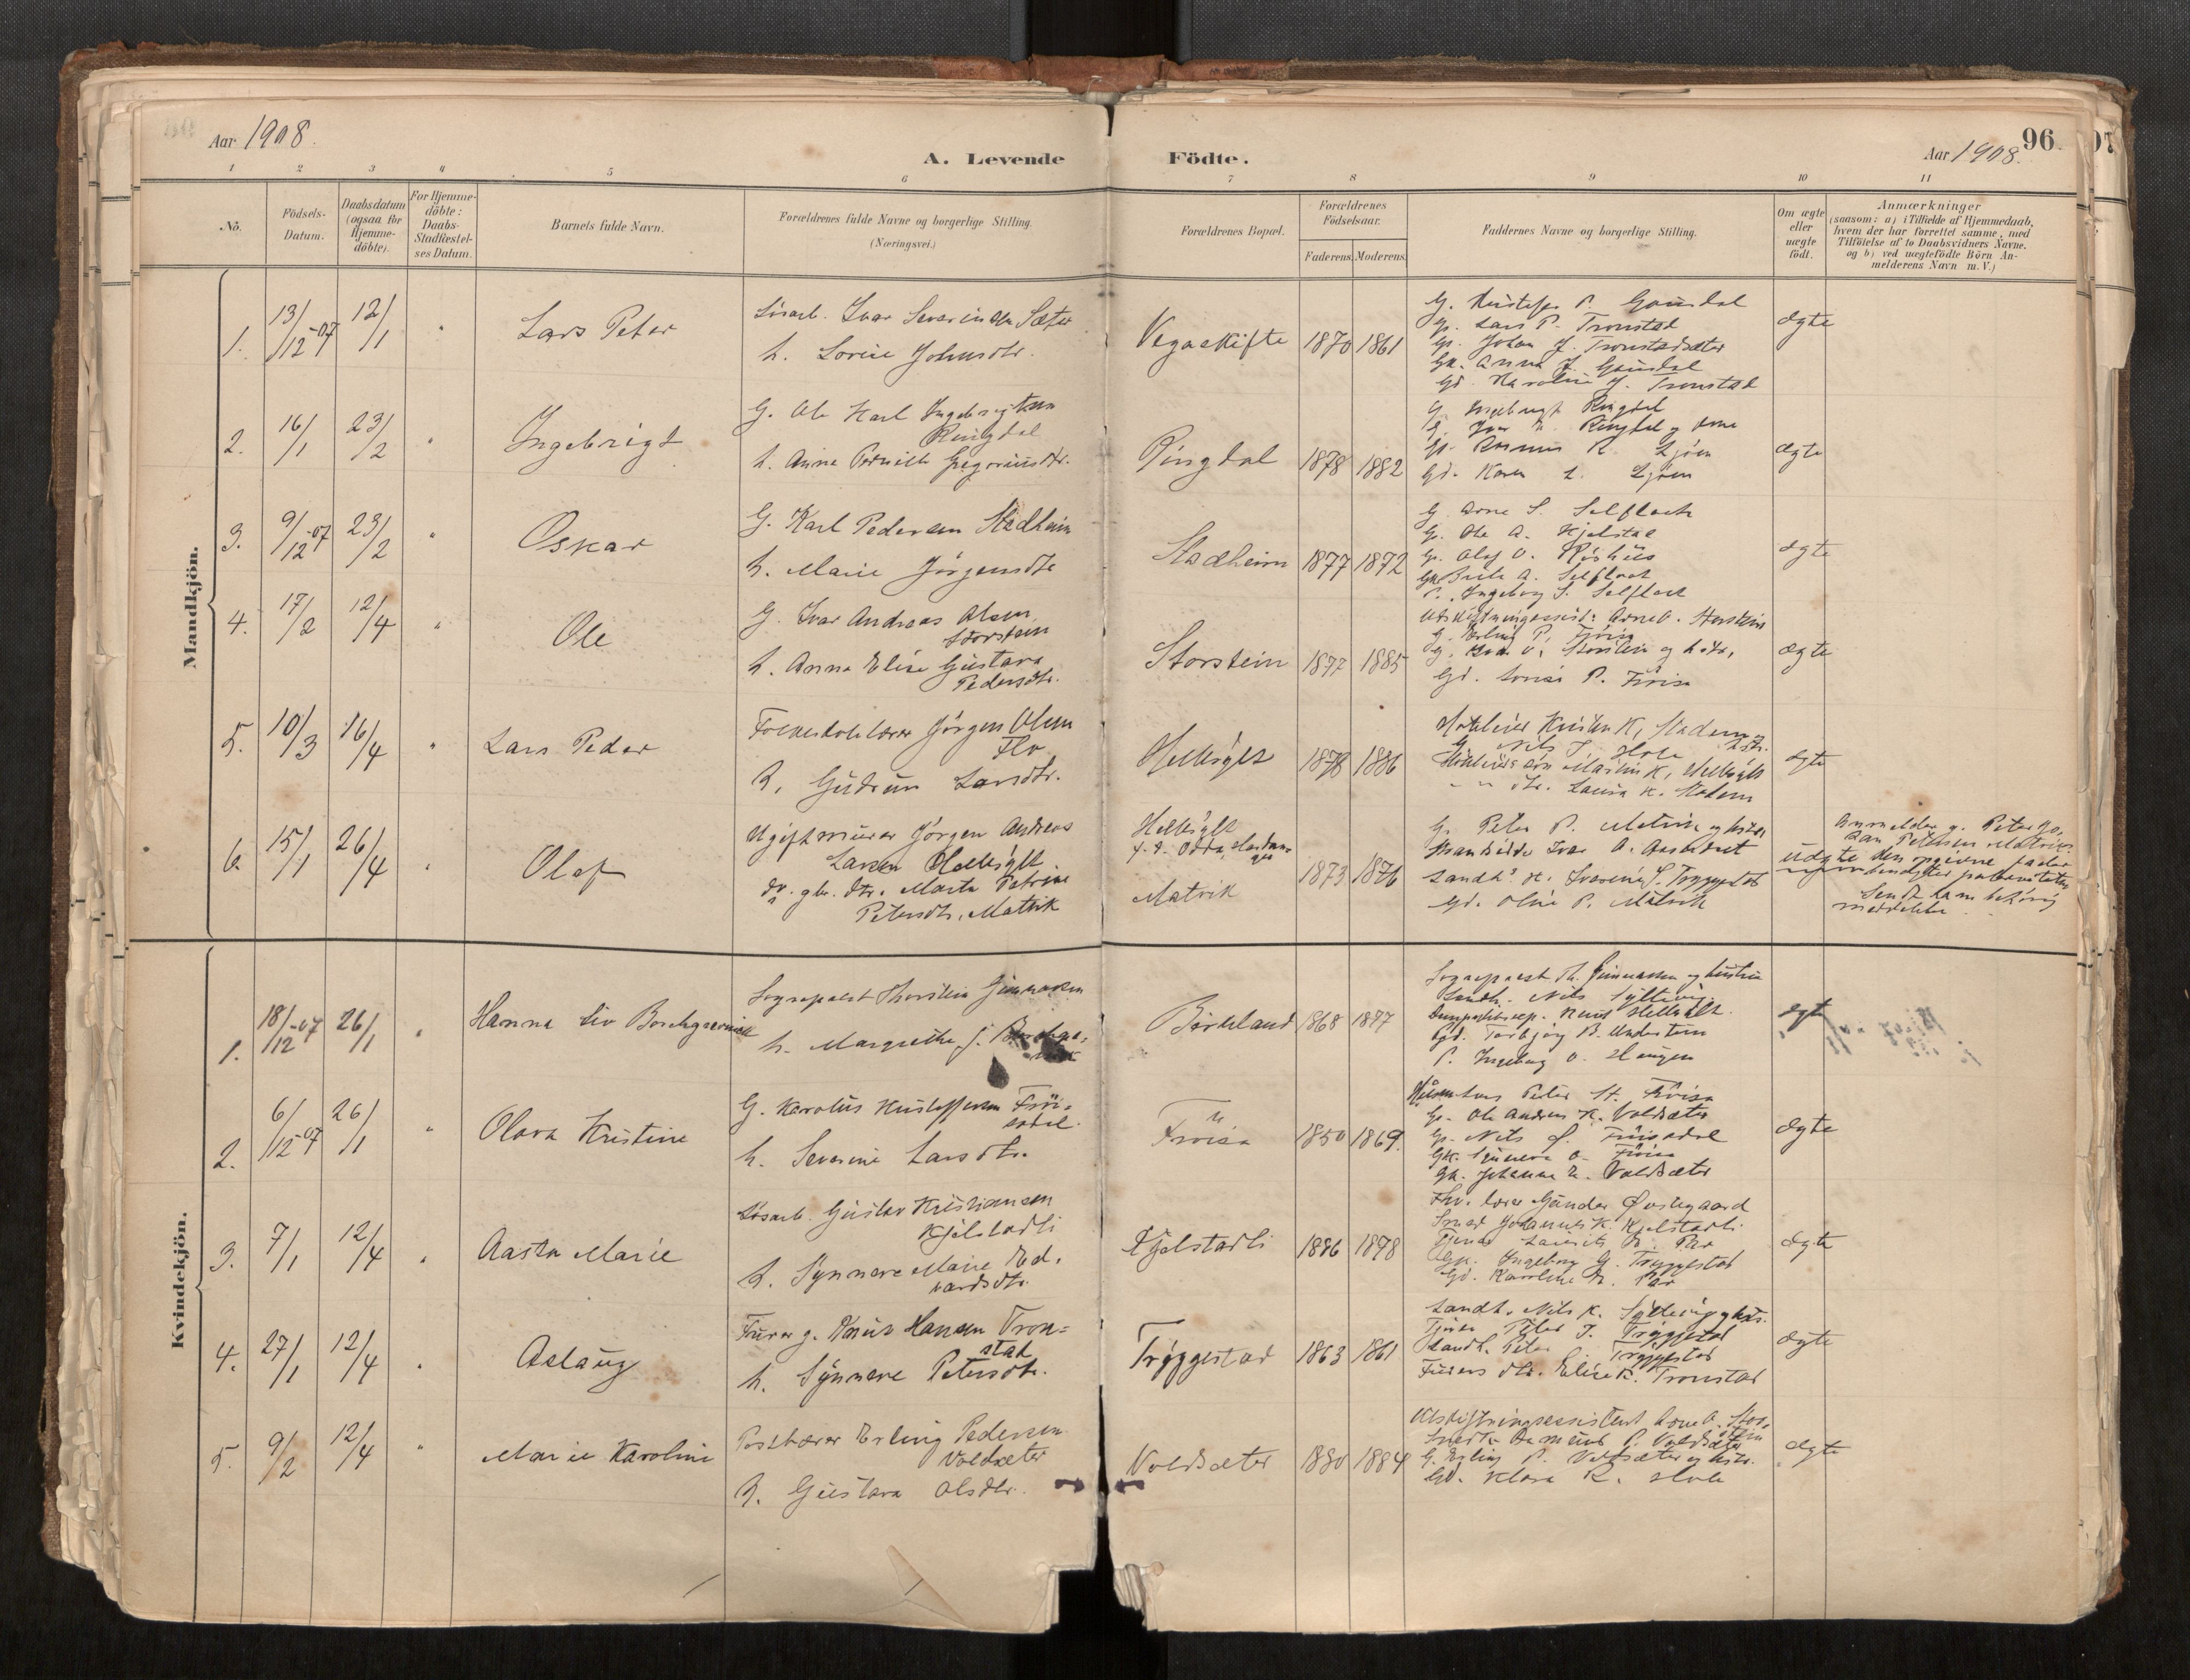 Aar 1908.
A. Levende Födte.
Aar 1908.
96
1 2 3 4 5 6 7 8 9 10 11
No.
Födsels-Datum.
Daabsdatum (ogsaa for Hjemme-döbte).
For Hjemme-döbte: Daabs-Stadfæstel-ses Datum.
Barnets fulde Navn.
Forældrenes fulde Navne og borgerlige Stilling.
(Næringsvei.)
Forældrenes Bopæl.
Forældrenes Födselsaar.
Faderens. Moderens.
Faddernes Navne og borgerlige Stilling.
Om ægte eller uægte födt.
Anmærkninger
(saasom: a) i Tilfælde af Hjemmedaab,
hvem der har forrettet samme, med
Tilföielse af to Daabsvidners Navne.
og b) ved uægtefödte Börn An-
melderens Navn m. V.)
Mandkjön.
1. 13/12-07 12/1 " Lars Peter
Løsarb. Ivar Severinsen Sæter
h. Lovise Johnsdtr.
Vegaskifte 1870 1861
G. Kristoffer P. Gausdal
Gs. Lars P. Tronstad
Gs. Johan J. Tronstadsæter
Gk. Anna J. Gausdal
Gd. Karoline J. Tronstad
ægte
2. 16/1 23/2 " Ingebrigt
G. Ole Karl Ingebrigtsen
Ringdal
h. Anne Pernille Gregoriusdtr.
Ringdal 1878 1882
G. Ingebrigt Ringdal
G. Ringdal og kone
Gs. Rasmus R. Ljøen
Gd. Karen L. Ljøen
ægte
3. 9/12-07 23/2 " Oskar
G. Karl Pedersen Stadheim
h. Marie Jörgensdtr
Stadheim 1877 1872
G. Arne S. Selflaat
G. Ole A. Kjelstad
G. Olaf O. Röshus
Gk. Brite A. Selflaat
P. Ingeborg S. Selflaat
ægte
4. 17/2 12/4 " Ole
G. Ivar Andreas Olsen
Storstein
h. Anna Elise Gustava
Pedersdtr.
Storstein 1877 1885
Utskiftningsassist. Arne O. Storstein
G. Erling P. Frøisa
G. Storstein og
Gd. Lovise P. Frøisa
ægte
5. 10/3 16/4 " Lars Peder
Folkeskolelærer Jörgen Olsen
Flo
h. Gudrun Larsdtr.
Hellesylt 1878 1886
Kristen K. Stadem
Nils J. Hole
Martin K. Hellesylt
" " dtr. Laura K. Stadem
ægte
6. 15/1 26/4 " Olaf
Ugift murer Jörgen Andreas
Larsen Hellesylt
og gbr. dtr. Marta Petrine
Petersdtr. Matvik
Hellesylt
f. t. Odda, Hardanger
Matvik 1873 1876
G. Peter P. Matvik og
Ivar A.
Landh. H. Severine S. Tryggestad
Gd. Oline P. Matvik
uægte
Anmelder g. Peter
Petersen Matvik.
den opgivne fader
Sendt ham behörig
meddelelse.
Kvindekjön.
1. 18/12-07 26/1 " Hanna Liv Borchgrevink
Sogneprest Thorstein Gunnarsen
h. Margrethe f. Borchgrevink
Birkeland 1868 1877
Sogneprest Th. Gunnarsen og hustru
Landh. Nils Sylteving
Knut Hellesylt.
Gd. Torbjörg B. Underteim
P. Ingeborg O. Haugen
ægte
2. 6/12-07 26/1 " Olava Kristine
G. Karolus Kristoffersen Frøi-
sadal.
h. Severine Larsdtr.
Frøisa 1850 1869.
Lars Peter St. Frøisa
Gs. Ole Andreas K. Voldsæter
Gs. Nils O. Frøisadal
Gk. Synneva O. Frøisa
Gk. Johanne E. Voldsæter
ægte
3. 7/1 12/4 " Aasta Marie
Løsarb. Gustav Kristiansen
Kjelstadli
h. Synneve Marie Ed-
vardsdtr.
Kjelstadli 1886 1878
Fhv. lærer Gunder Øvstegaard
Smed Johannes K. Kjelstadli
Tjener Laurits R. Rør
Gk. Ingeborg G. Tryggestad
Gd. Karoline R. Rør
ægte
4. 27/1 12/4 " Aslaug
Furer g. Knut Hansen Tron-
stad
h. Synneve Petersdtr.
Tryggestad 1863 1861
Landh. Nils K. Sylteving og
Tjener Peter J. Tryggestad
Landh. Peter Tryggestad
Furers dtr. Elise K. Tronstad
ægte
5. 9/2 12/4 " Marie Karoline
Postbærer Erling Pedersen
Voldsæter
h. Gustava Olsdtr.
Voldsæter 1880 1884
Utskiftningsassistent Arne O. Storstein
Rasmus P. Voldsæter
G. Erling P. Voldsæter og
Gd. Klara K. Hole
ægte